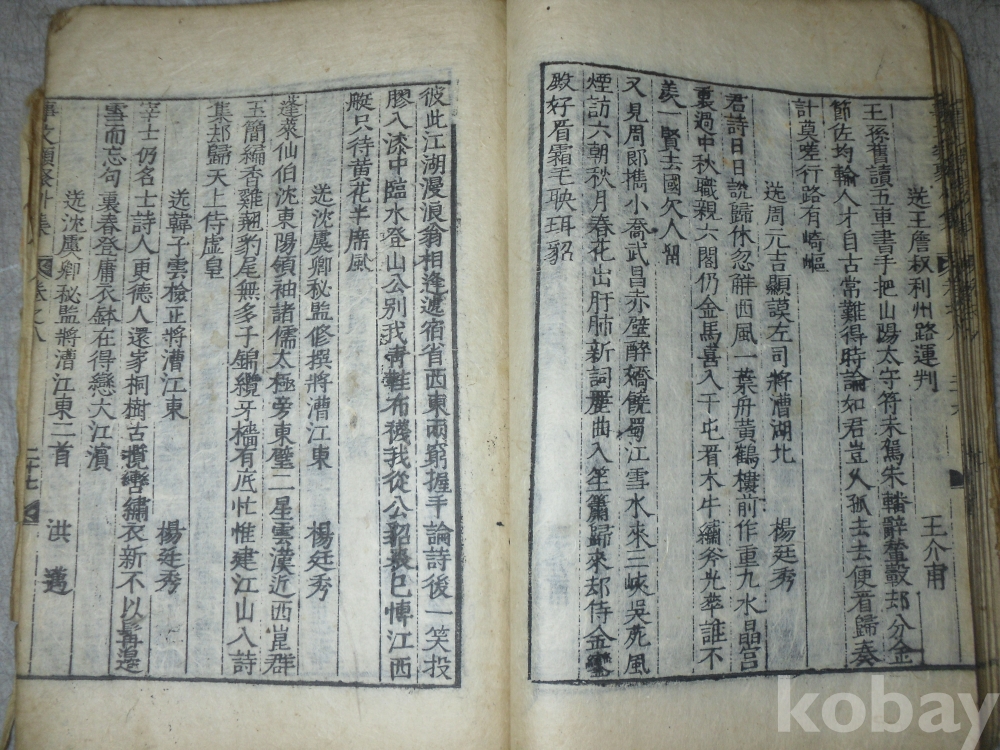 送王詹叔利州路運判 王介甫
王孫舊讀五車書手把山陽太守符未駕朱轓辭輦轂却分金
節佐均輸人才自古常難得時論如君豈久孤去去便看歸奏
計莫嗟行路有崎嶇
送周元吉顯謨左司將漕湖北 楊廷秀
君詩日日說歸休忽觧西風一葉舟黃鶴樓前作重九水晶宮
裏過中秋職親六閣仍金馬喜入千屯看木牛繡斧光華誰不
羨一賢去國欠人留
又見周郎擕小喬武昌赤壁醉嬌饒蜀江雪水來三峽吳苑風
煙訪六朝秋月春花出肝肺新詞度曲入笙簫歸來却侍金鑾
殿好看霜毛映珥貂
彼此江湖漫浪翁相逢遞宿省西東兩窮握手論詩後一笑投
膠入漆中臨水登山公別我靑鞋布襪我從公貂裘已博江西
艇只待黃花半席風
送沈虞卿秘監修撰將漕江東 楊廷秀
蓬萊仙伯沈東陽領袖諸儒太極旁東壁二星雲漢近西崑群
玉簡編香雞翹豹尾無多子錦纜牙檣有底忙惟建江山入詩
集却歸天上侍虛皇
送韓子雲檢正將漕江東 楊廷秀
宰士仍名士詩人更德人還家桐樹古攬轡繡衣新不以髯邊
雪而忘句裏春登庸衣鉢在得戀大江濱
送沈虞卿秘監將漕江東二首 洪邁
事文類聚外集 卷之八 二十七
kobay